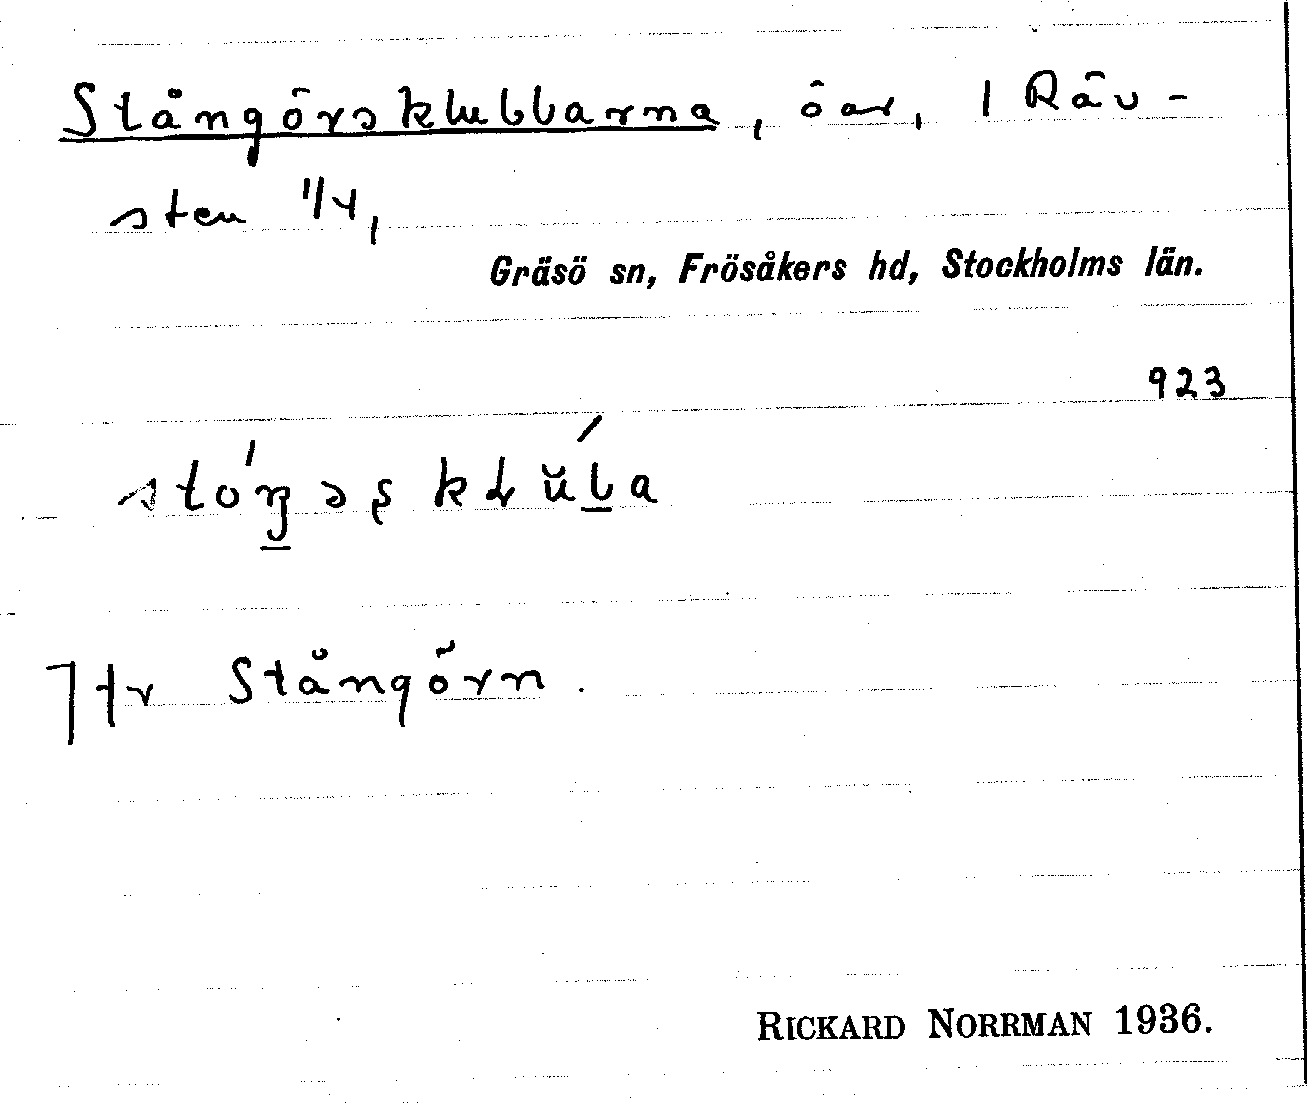 Stångörsklubbarna, öar, 1 Räv-
sten 1/4,
Gräsö sn, Frösåkers hd, Stockholms län.
923
Jfr Stångörn.
RICKARD NORRMAN 1936.